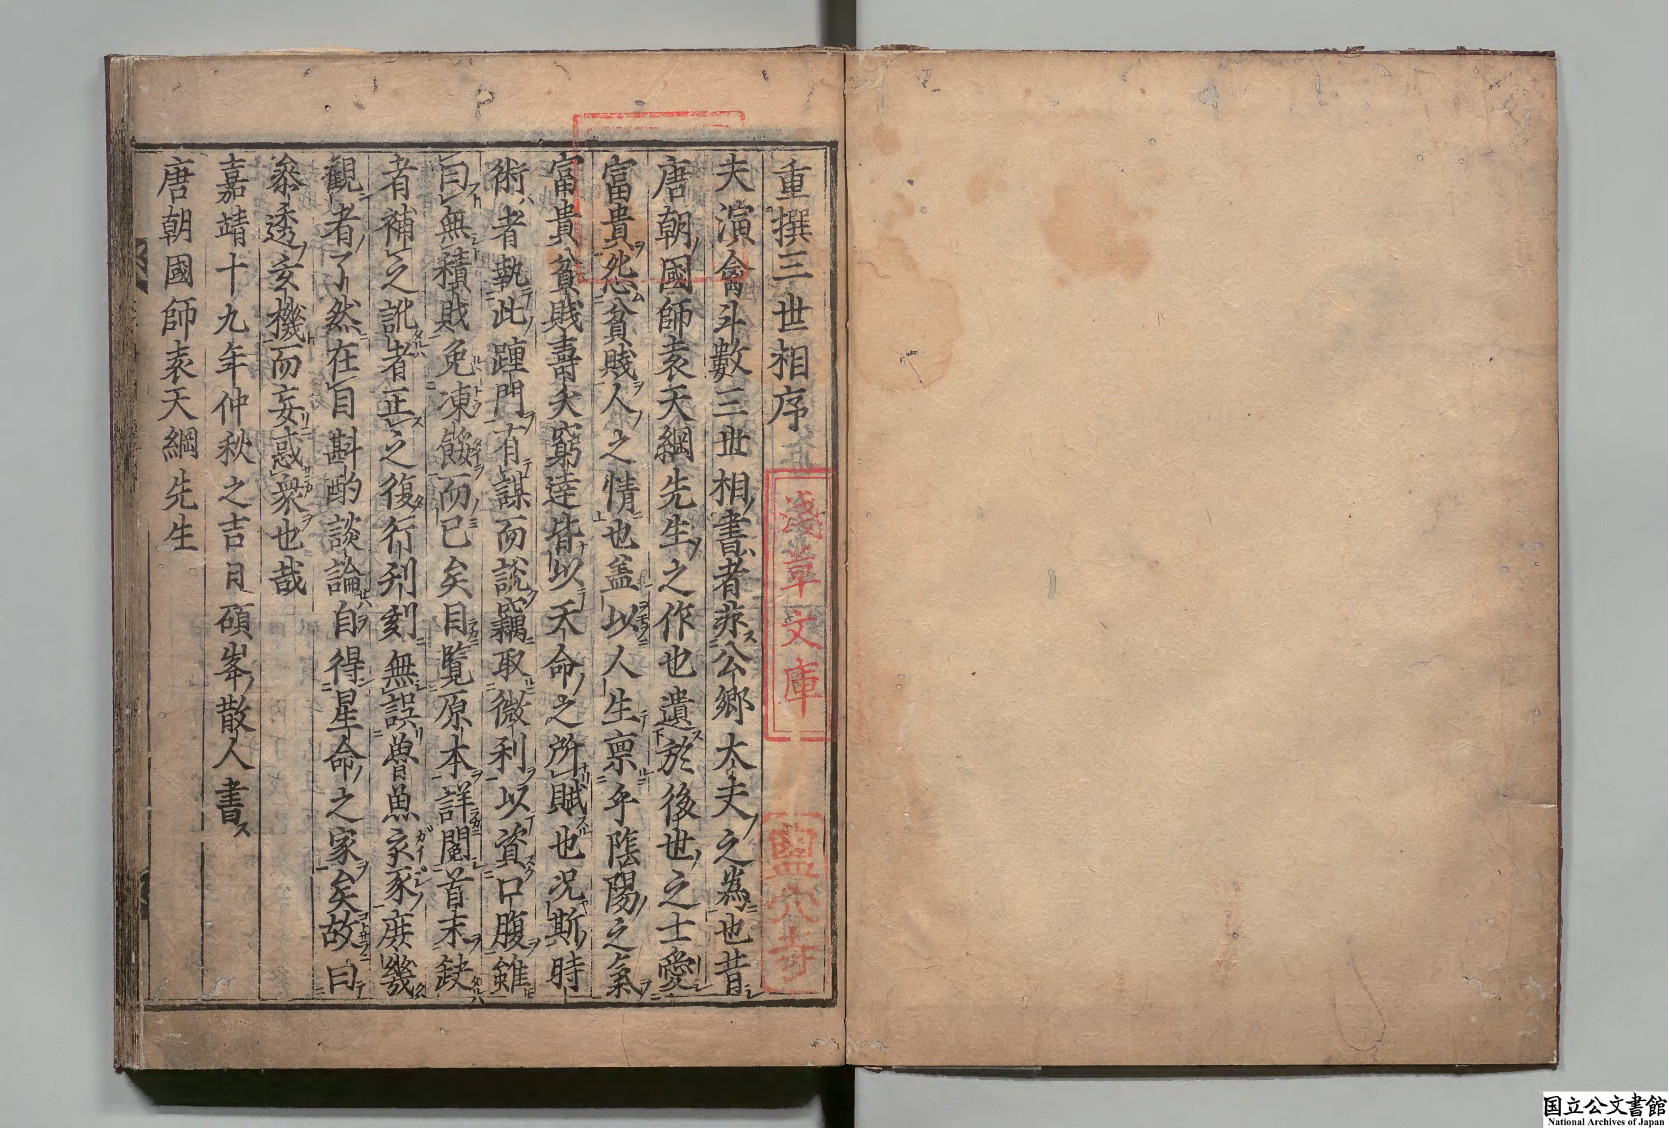 重撰三世相序
夫演禽斗數三世相書者非公鄉大夫之為也昔
唐朝國師袁天綱先生之作也遺於後世之士愛
富貴怨貧賤人之情也盖以人生禀乎陰陽之氣
富貴貧賤壽夭窮達皆以天命之所賦也况斯時
術者執此踵門有謀而說竊取微利以資口腹雖
曰無積財免凍餒而已矣目覧原本詳閱首末缺
者補之訛者正之復行刋刻無誤曾魚亥豕庻幾
觀者了然在目斟酌談論自得星命之家矣故曰
叅透玄機而妄惑衆也哉
嘉靖十九年仲秋之吉日碩峯散人書
唐朝國師袁天綱先生
淺草文庫
国立公文書館
National Archives of Japan